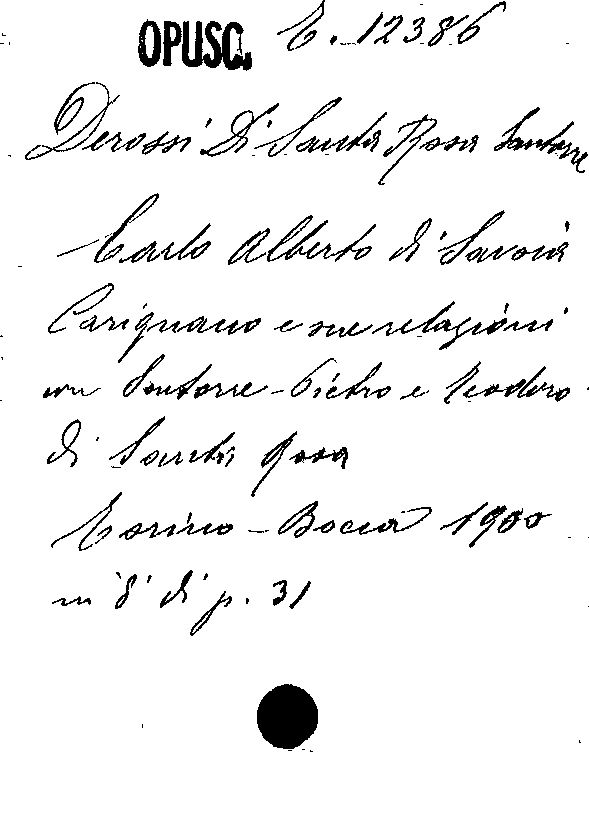 OPUSC. E. 12386
Derossi Di Santa Rosa Santorre
Carlo Alberto di Savoia
Carignano e sue relazioni
con Santorre - Pietro e Teodoro
di Santa Rosa
Torino - Bocca 1900
in 8° di p. 31